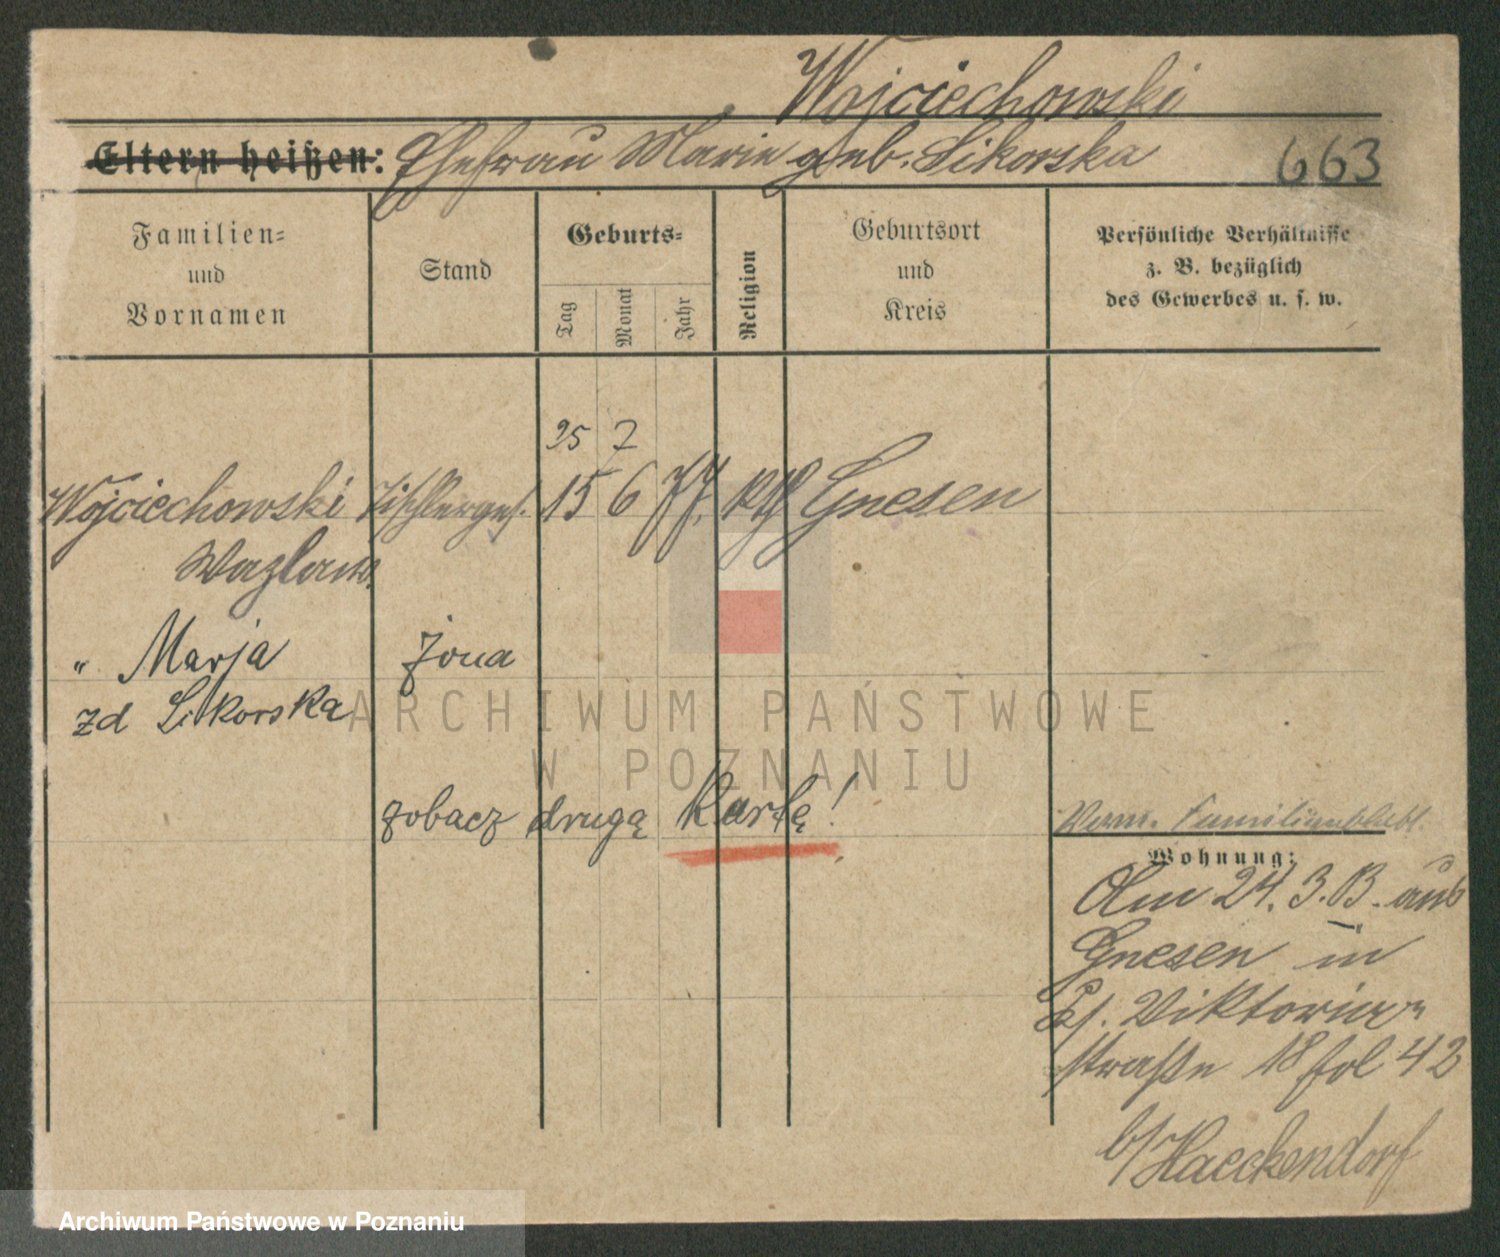 Wojciechowski
Eltern heißen: Ehefrau Marie geb. Sikorska 663
Familien-
und
Vornamen
Stand
Geburts-
Tag
Monat
Jahr
Religion
Geburtsort
und
Kreis
Persönliche Verhältnisse
z. B. bezüglich
des Gewerbes u. s. w.
25 7
Wojciechowski Tischlerges. 15 6 77. kth Gnesen
Wazlaw.
" Marja żona
zd Sikorska
zobacz drugą kartę!
Verm. Familienblatt.
Wohnung:
Am 24. 3. 13. aus
Gnesen in
Viktoria-
straße 18 fol 42
b/Haeckendorf
ARCHIWUM PAŃSTWOWE
W POZNANIU
Archiwum Państwowe w Poznaniu